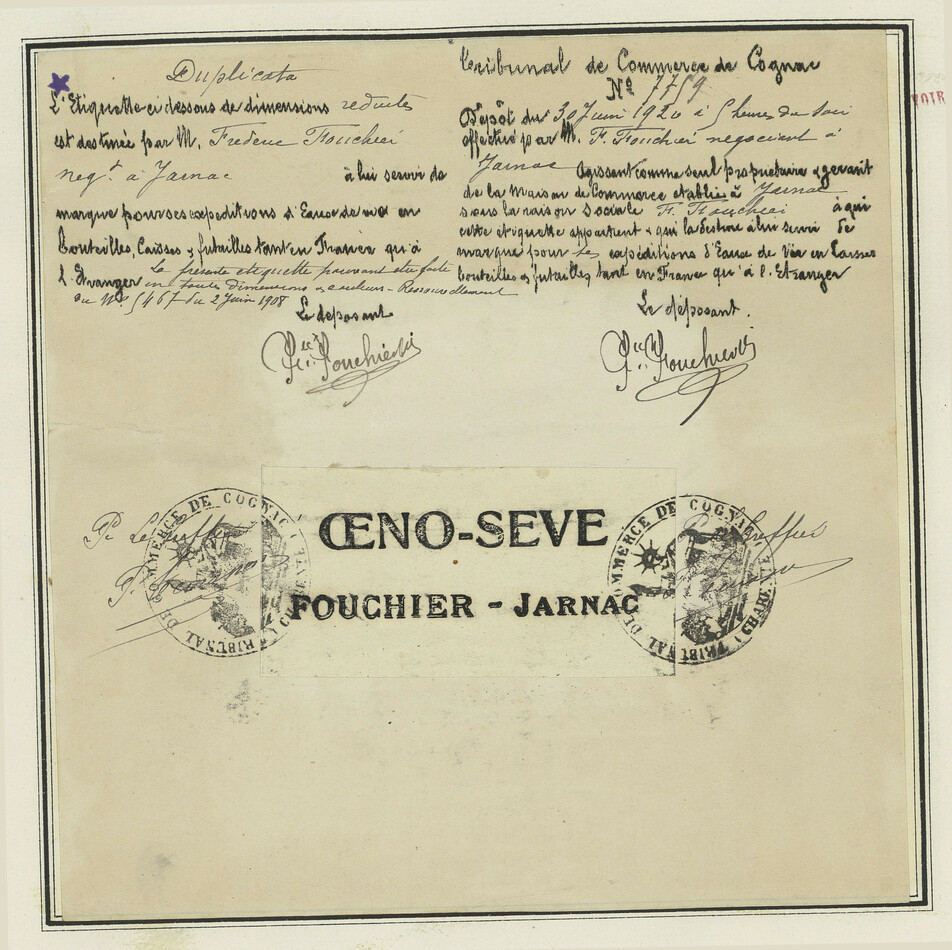 Duplicata
L'Etiquette ci dessous de dimensions reduites
est destinée par M. Frederic Fouchier
negt à Jarnac à lui servir de
marque pour ses expeditions d'Eaux de vie en
Bouteilles, Caisses & futailles tant en France qu'à
l'Etranger La presente etiquette pouvant etre faite
en toutes dimensions & couleurs - Renouvellement
du No 5467 du 2 Juin 1908
Le déposant
Fric Fouchier
Tribunal de Commerce de Cognac
No 7759
Dépôt du 30 Juin 1920 à 5 heures du soir
effectué par M. F. Fouchier negociant à
Jarnac Agissant comme seul propriétaire & gerant
de la Maison de Commerce etablie à Jarnac
sous la raison sociale F. Fouchier à qui
cette etiquette appartient & qui la destine à lui servir de
marque pour ses expéditions d'Eaux de Vie en Caisses
bouteilles & futailles tant en France qu'à l'Etranger
Le déposant.
Fric Fouchier
ŒNO-SEVE
FOUCHIER - JARNAC
TRIBUNAL DE COMMERCE DE COGNAC
P. Le Greffier
TRIBUNAL DE COMMERCE DE COGNAC (CHARENTE)
P. Le Greffier